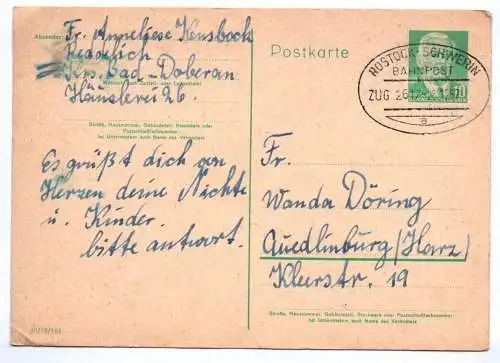 Absender:
Fr. Anneliese Kensbock
Reddelich
Krs. Bad-Doberan
Häuslerei 26.
Straße, Hausnummer, Gebäudeteil, Stockwerk oder
Postschließfachnummer
bei Untermietern auch Name des Vermieters
Es grüßt dich von
Herzen deine Nichte
u. Kinder.
bitte antwort.
Postkarte
ROSTOCK-SCHWERIN
BAHNPOST
ZUG
a
10
Fr.
Wanda Döring
Quedlinburg/(Harz)
Kleerstr. 19
Straße, Hausnummer, Gebäudeteil, Stockwerk oder Postschließfachnummer
bei Untermietern auch Name des Vermieters